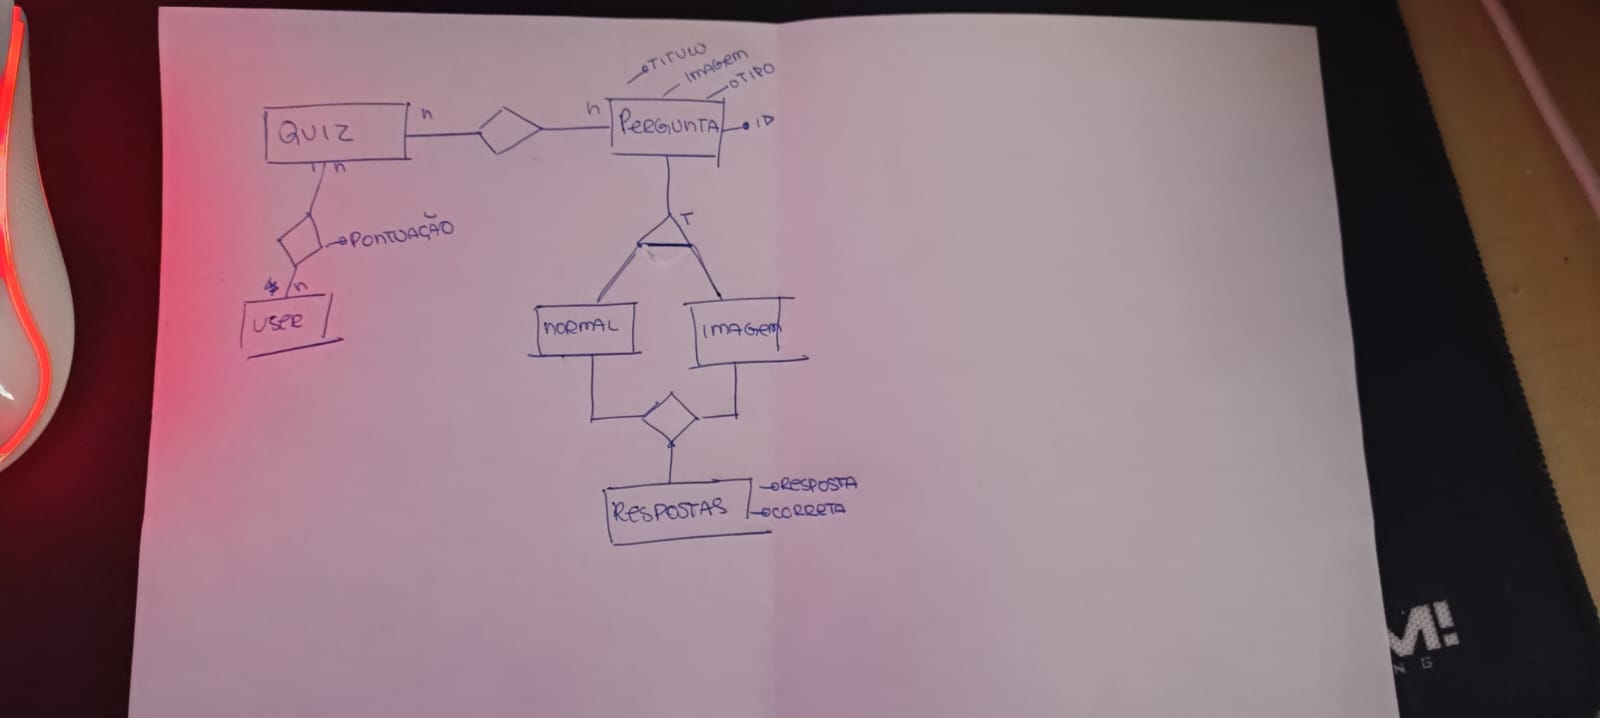 TITULO
IMAGEM
TIPO
QUIZ
n
n
PERGUNTA
ID
n
T
PONTUAÇÃO
n
USER
NORMAL
IMAGEM
RESPOSTAS
RESPOSTA
CORRETA
M!
N G